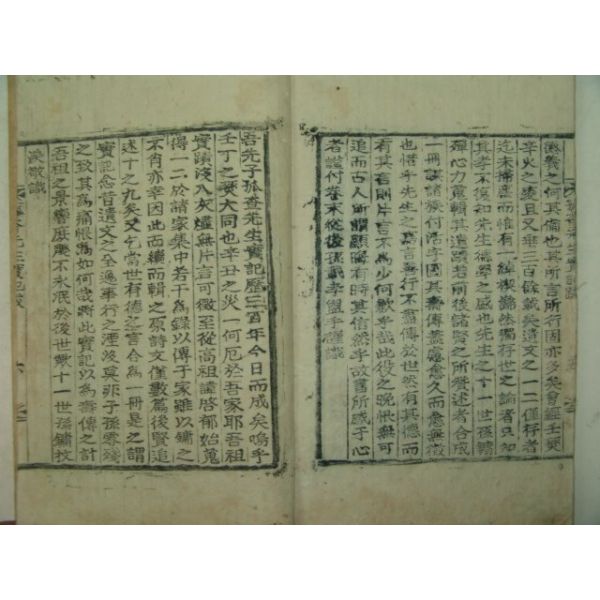 之何其備也其所言所行因亦多矣會經壬燹
辛火之變且又垂三百餘載矣遺文之一二僅存者
迄未掃塵而惟有一綽楔巋然獨存世之論者只知
其孝不復知先生德學之盛也先生之十一世孫鏞
殫心力蒐輯其原詩若前後諸賢之所聲述者合成
一冊謀諸族付活字圖其壽傳蓋愈久而愈無徵
也惜乎先生之嘉言善行不盡傳於世然有其德而
有其言則片言不為少何歎乎哉此役之晚恨無可
追而其古人所謂顯晦有時其信然乎故書所感于心
者識付卷末從後孫載孝盥手謹識
吾先子孤査先生實記歷三百年今日而成矣嗚乎
壬丁之變大同也辛丑之災一何厄於吾家耶吾祖
實蹟沒入灰燼無片言可徵至從高祖諱啓郁始蒐
得一二於諸家集中若干為錄以傳于家雖以鏞之
不肖亦幸因此而續而輯之原詩文僅數篇後賢追
述十之九矣又乞當世有德之言合為一冊是之謂
實記念昔遺文之全逸事行之湮沒莫非子孫零殘
之致其為痛恨為如何哉將此實記以為壽傳之計
吾祖之景響庶幾不永泯於後世歟十一世孫鏞抆
淚敬識